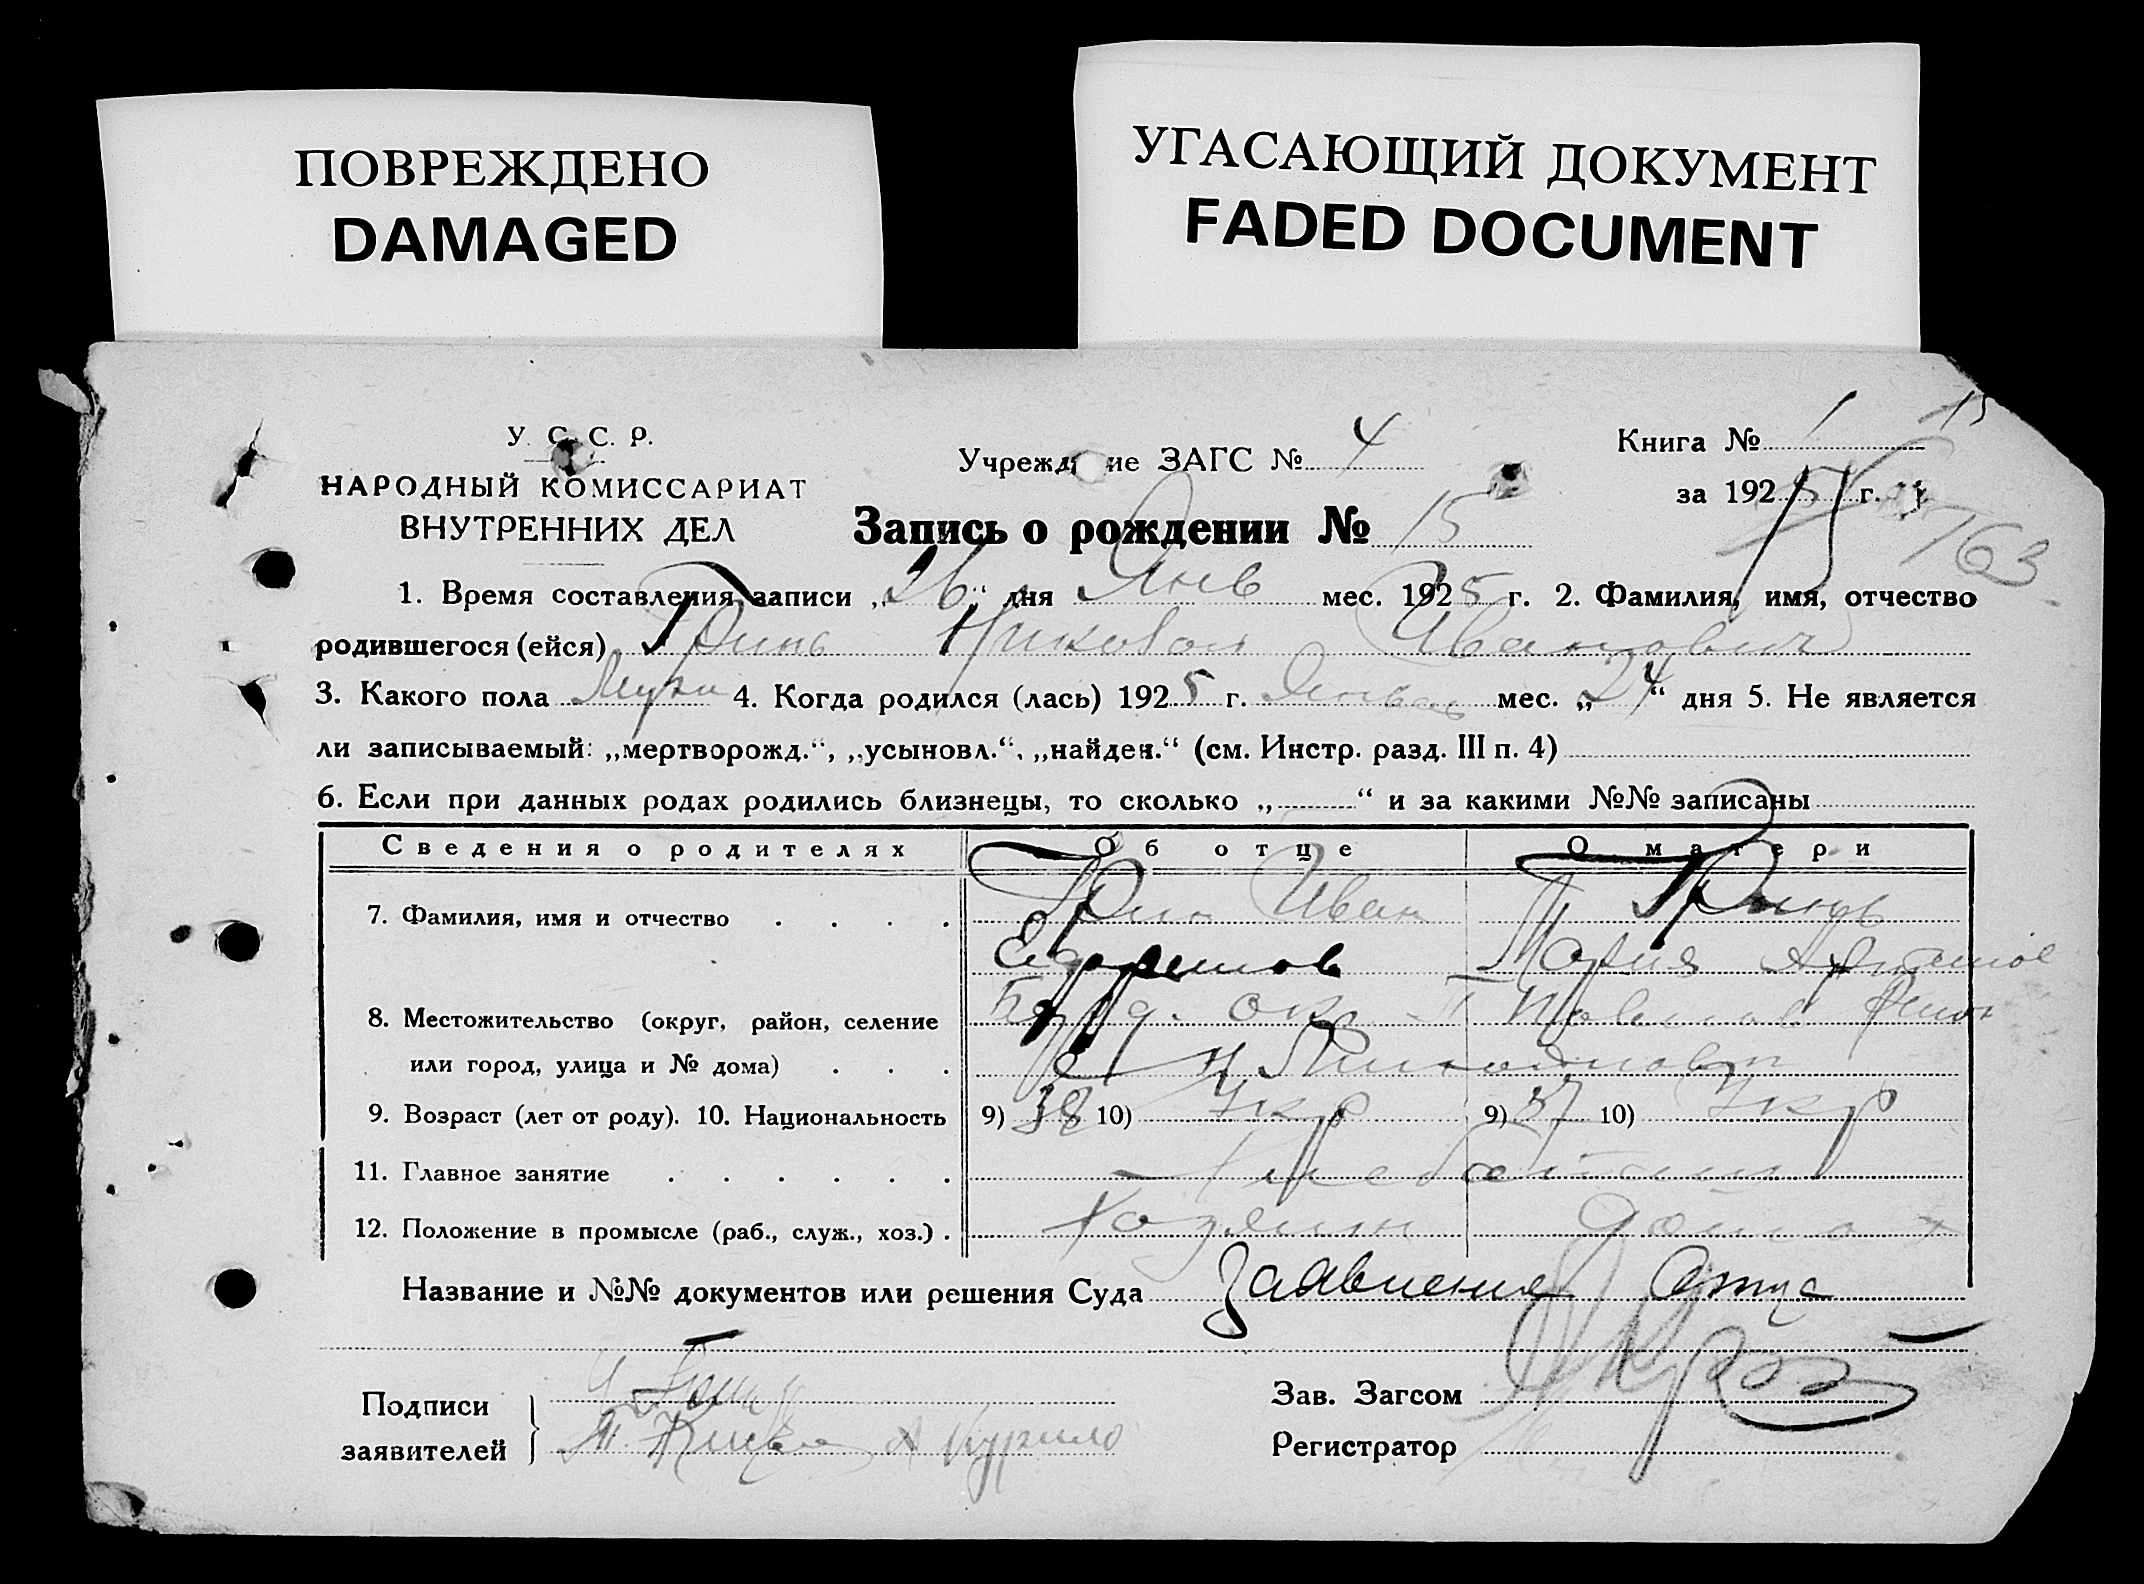 ПОВРЕЖДЕНО
DAMAGED
УГАСАЮЩИЙ ДОКУМЕНТ
FADED DOCUMENT
У. С. С. Р.
НАРОДНЫЙ КОМИССАРИАТ
ВНУТРЕННИХ ДЕЛ
Учреждение ЗАГС № 4
Книга № 1
15
за 1925 г.
163
Запись о рождении № 15
1. Время составления записи „26“ дня Янв мес. 1925 г. 2. Фамилия, имя, отчество
родившегося (ейся) Гринь Николай Иванович
3. Какого пола Мужч 4. Когда родился (лась) 1925 г. Январь мес. „24“ дня 5. Не является
ли записываемый: „мертворожд.“, „усыновл.“, „найден.“ (см. Инстр. разд. III п. 4)
6. Если при данных родах родились близнецы, то сколько „ “ и за какими №№ записаны
Сведения о родителях Об отце О матери
7. Фамилия, имя и отчество Грин Иван Гринь
Ефремов Мария
8. Местожительство (округ, район, селение окр
или город, улица и № дома)
9. Возраст (лет от роду). 10. Национальность 9) 38 10) Укр 9) 37 10) Укр
11. Главное занятие
12. Положение в промысле (раб., служ., хоз.) Хозяин
Название и №№ документов или решения Суда Заявление отца
Подписи
заявителей
Зав. Загсом
Регистратор